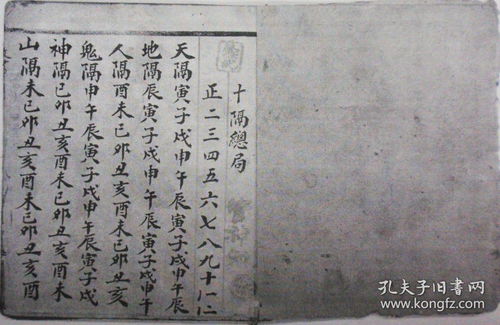 十隔總局
正二三四五六七八九十一二
天隔寅子戌申午辰寅子戌申午辰
地隔辰寅子戌申午辰寅子戌申午
人隔酉未巳卯丑亥酉未巳卯丑亥
鬼隔申午辰寅子戌申午辰寅子戌
神隔巳卯丑亥酉未巳卯丑亥酉未
山隔未巳卯丑亥酉未巳卯丑亥酉
孔夫子旧书网
www.kongfz.com